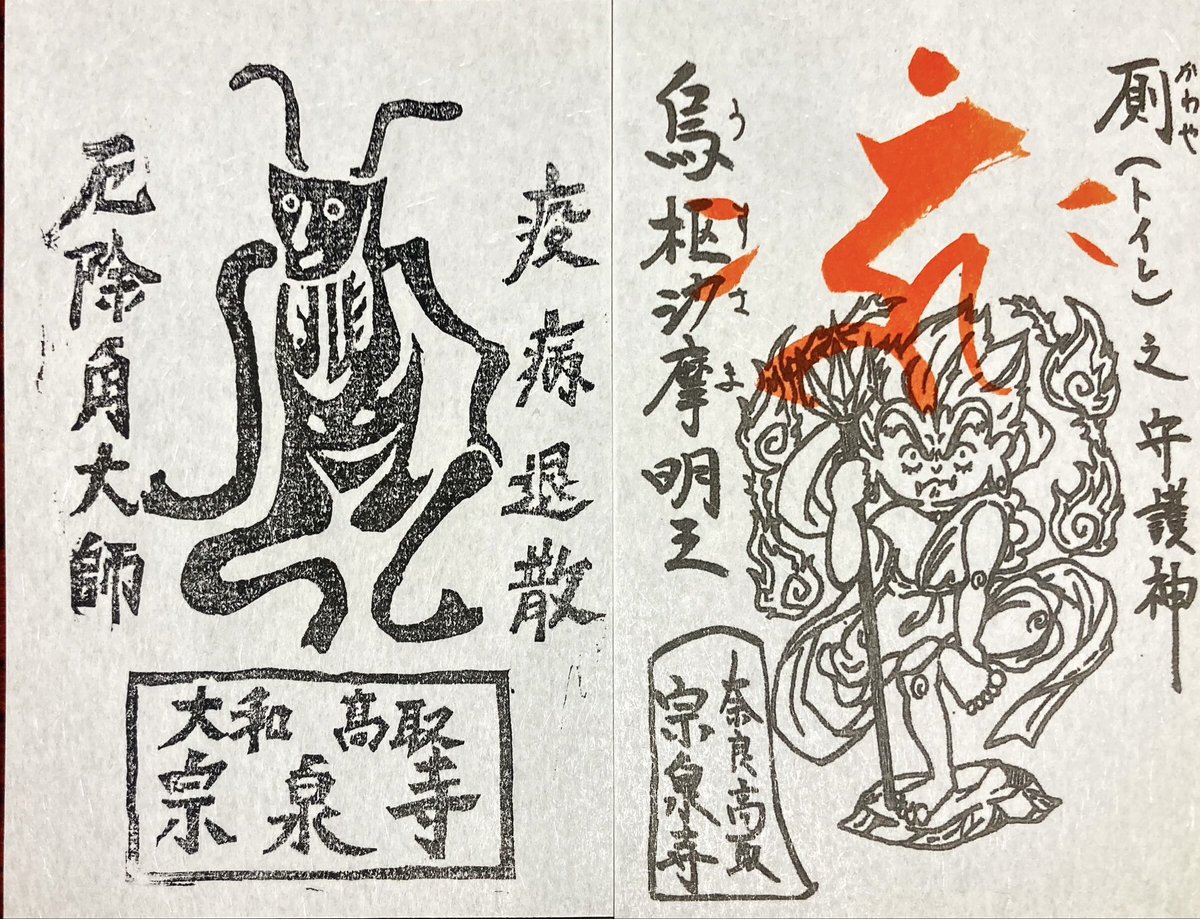 疫病退散
厄除角大師
大和高取
宗泉寺
厠(トイレ)之守護神
かわや
烏枢沙摩明王
うすさま
奈良高取
宗泉寺